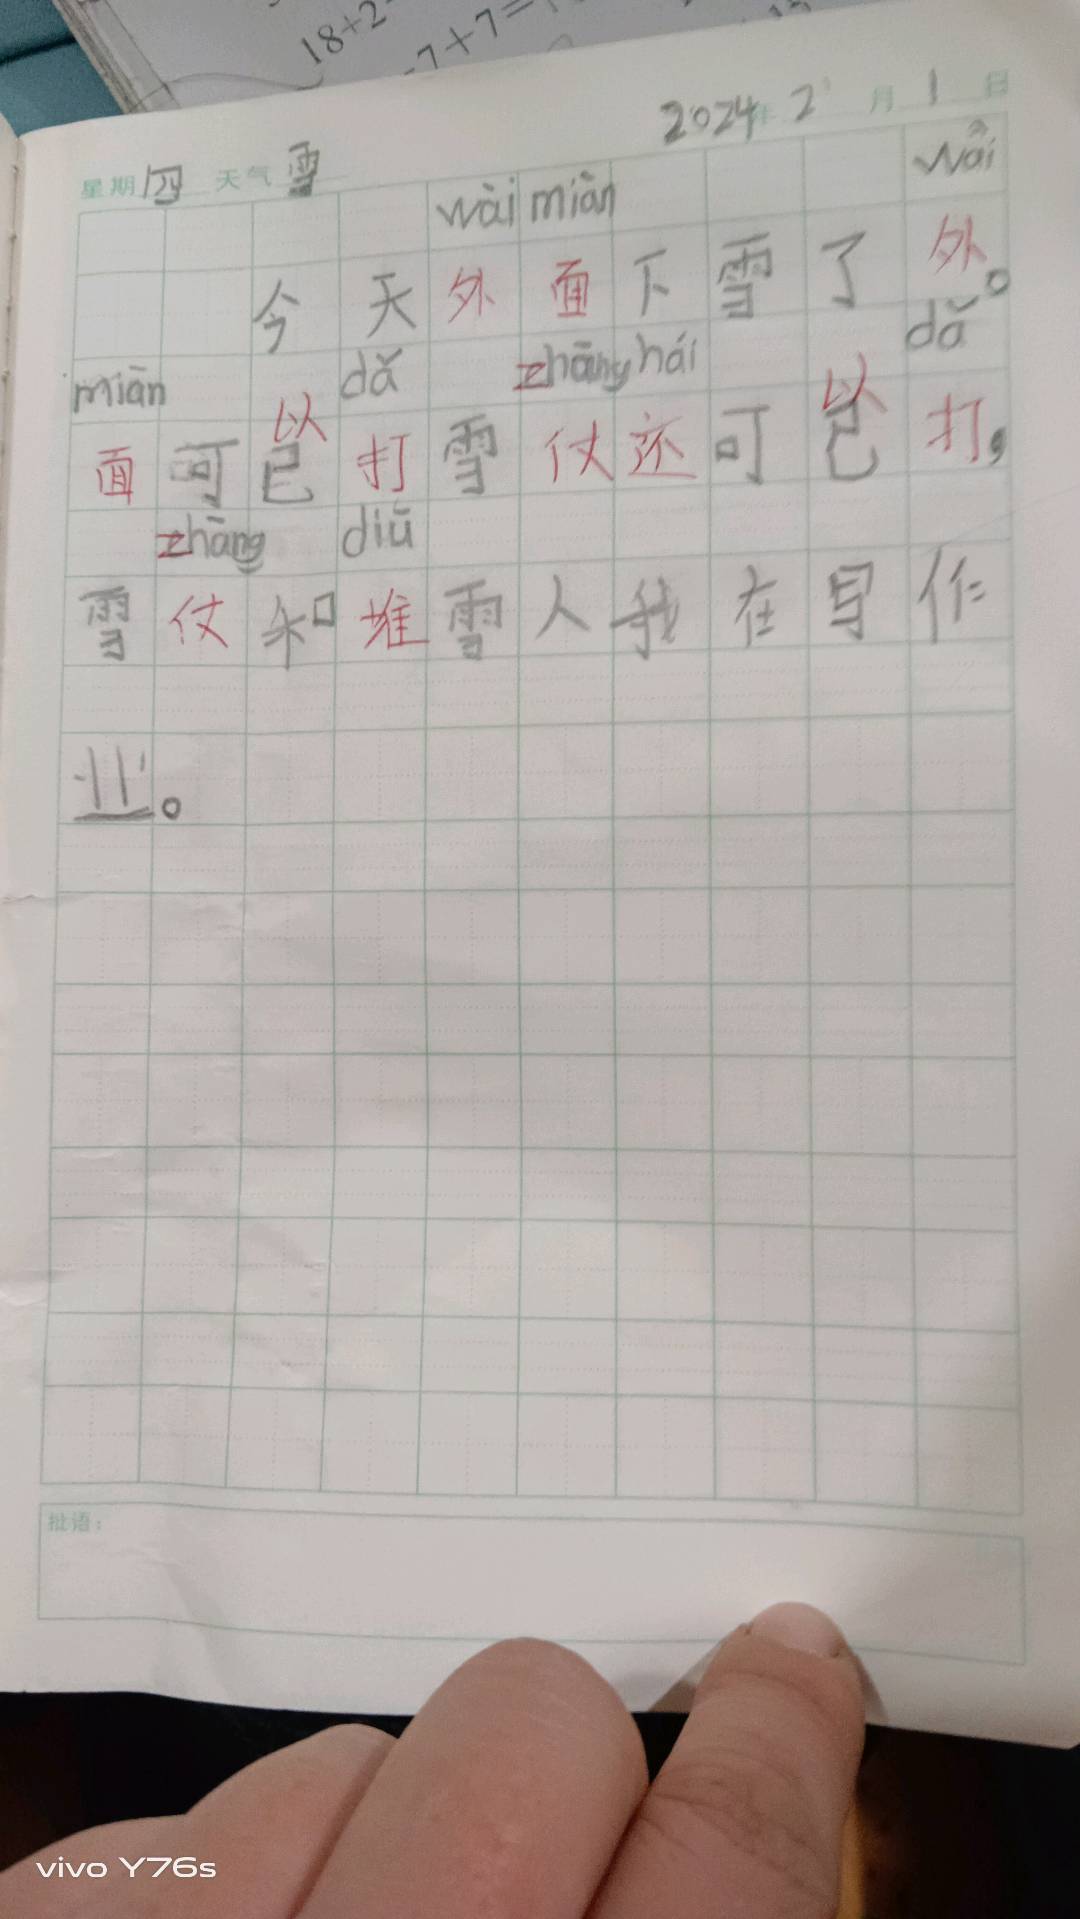 18+2
-7+7=
2024年 2 月 1 日
星期 四 天气 雪
wài miàn wǎi
今天外面下雪了外。
miān dǎ zhāng hái dǎ
以 以
面可已打雪仗还可已打,
zhāng diū
雪仗和堆雪人我在写作
业。
批语:
vivo Y76s